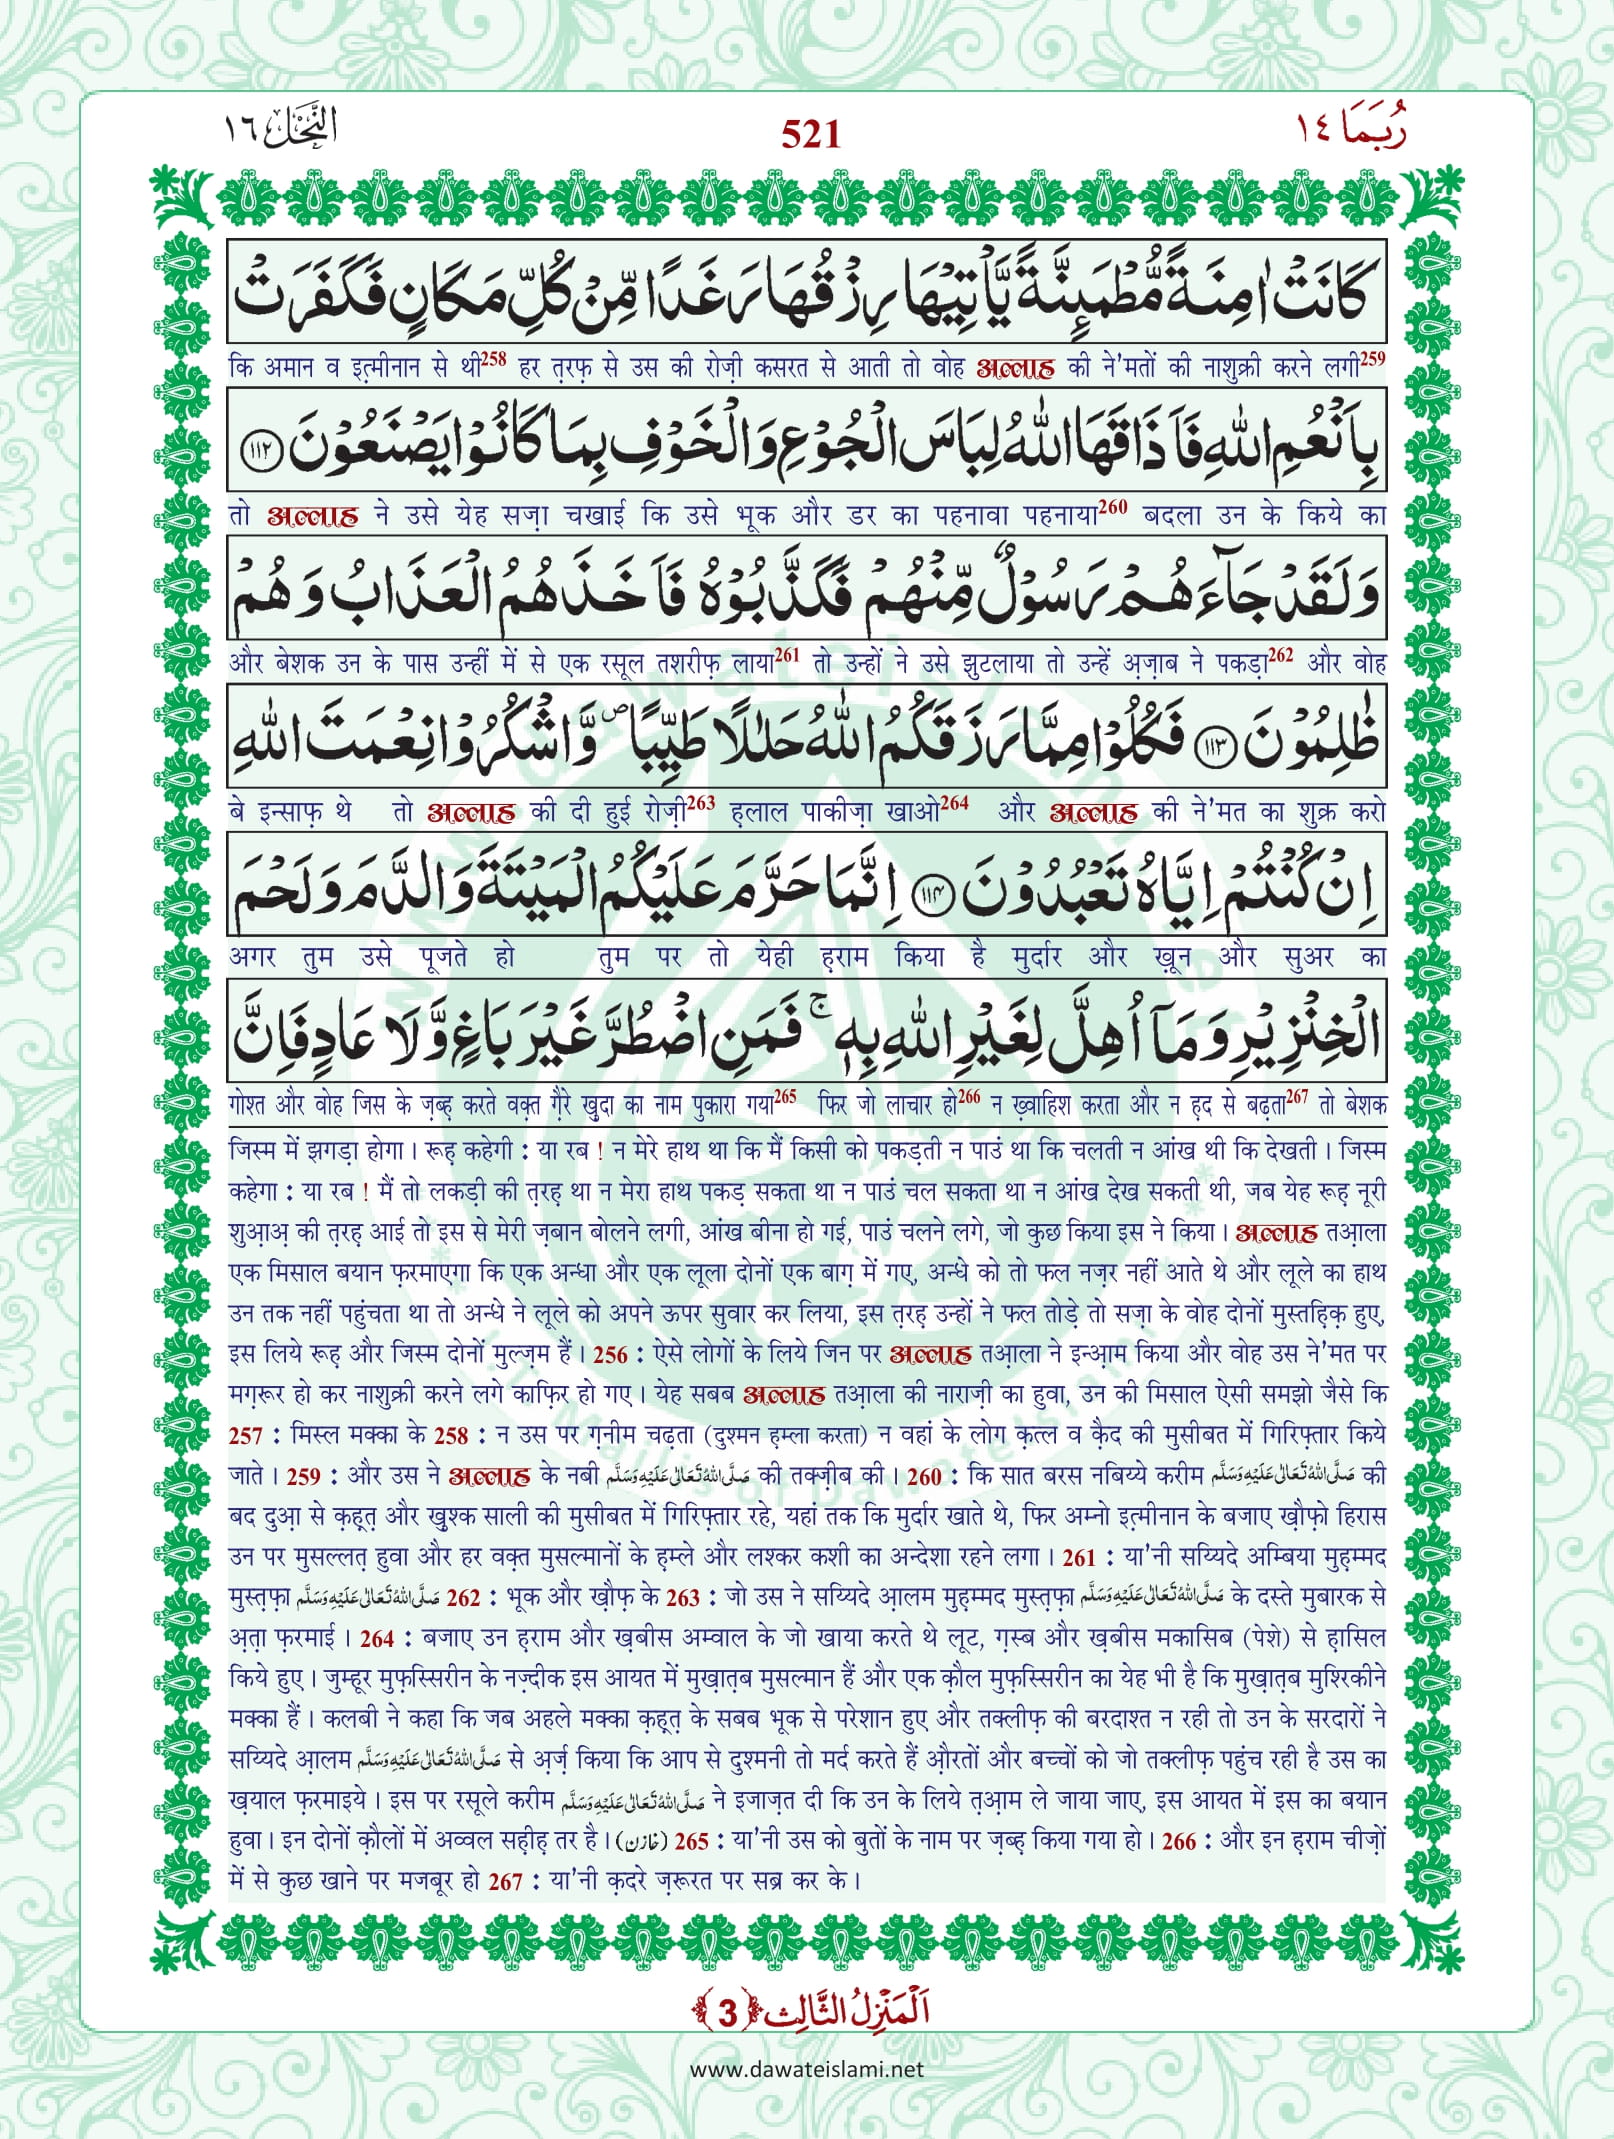 رُبَمَا ١٤
521
النَّحْل ١٦
كَانَتْ اٰمِنَةً مُّطْمَىِٕنَّةً یَّاْتِیْهَا رِزْقُهَا رَغَدًا مِّنْ كُلِّ مَكَانٍ فَكَفَرَتْ
कि अमान व इत़्मीनान से थी258 हर त़रफ़ से उस की रोज़ी कसरत से आती तो वोह अल्लाह की ने'मतों की नाशुक्री करने लगी259
بِاَنْعُمِ اللّٰهِ فَاَذَاقَهَا اللّٰهُ لِبَاسَ الْجُوْعِ وَ الْخَوْفِ بِمَا كَانُوْا یَصْنَعُوْنَ ﴿۱۱۲﴾
तो अल्लाह ने उसे येह सज़ा चखाई कि उसे भूक और डर का पहनावा पहनाया260 बदला उन के किये का
وَ لَقَدْ جَآءَهُمْ رَسُوْلٌ مِّنْهُمْ فَكَذَّبُوْهُ فَاَخَذَهُمُ الْعَذَابُ وَ هُمْ
और बेशक उन के पास उन्हीं में से एक रसूल तशरीफ़ लाया261 तो उन्हों ने उसे झुटलाया तो उन्हें अ़ज़ाब ने पकड़ा262 और वोह
ظٰلِمُوْنَ ﴿۱۱۳﴾ فَكُلُوْا مِمَّا رَزَقَكُمُ اللّٰهُ حَلٰلًا طَیِّبًا ۪ وَّ اشْكُرُوْا نِعْمَتَ اللّٰهِ
बे इन्साफ़ थे तो अल्लाह की दी हुई रोज़ी263 ह़लाल पाकीज़ा खाओ264 और अल्लाह की ने'मत का शुक्र करो
اِنْ كُنْتُمْ اِیَّاهُ تَعْبُدُوْنَ ﴿۱۱۴﴾ اِنَّمَا حَرَّمَ عَلَیْكُمُ الْمَیْتَةَ وَ الدَّمَ وَ لَحْمَ
अगर तुम उसे पूजते हो तुम पर तो येही ह़राम किया है मुर्दार और ख़ून और सुअर का
الْخِنْزِیْرِ وَ مَاۤ اُهِلَّ لِغَیْرِ اللّٰهِ بِهٖ ۚ فَمَنِ اضْطُرَّ غَیْرَ بَاغٍ وَّ لَا عَادٍ فَاِنَّ
गोश्त और वोह जिस के ज़ब्ह़ करते वक़्त ग़ैरे ख़ुदा का नाम पुकारा गया265 फिर जो लाचार हो266 न ख़्वाहिश करता और न ह़द से बढ़ता267 तो बेशक
जिस्म में झगड़ा होगा। रूह़ कहेगी : या रब ! न मेरे हाथ था कि मैं किसी को पकड़ती न पाउं था कि चलती न आंख थी कि देखती। जिस्म
कहेगा : या रब ! मैं तो लकड़ी की त़रह़ था न मेरा हाथ पकड़ सकता था न पाउं चल सकता था न आंख देख सकती थी, जब येह रूह़ नूरी
शुआ़अ़ की त़रह़ आई तो इस से मेरी ज़बान बोलने लगी, आंख बीना हो गई, पाउं चलने लगे, जो कुछ किया इस ने किया। अल्लाह तआ़ला
एक मिसाल बयान फ़रमाएगा कि एक अन्धा और एक लूला दोनों एक बाग़ में गए, अन्धे को तो फल नज़र नहीं आते थे और लूले का हाथ
उन तक नहीं पहुंचता था तो अन्धे ने लूले को अपने ऊपर सुवार कर लिया, इस त़रह़ उन्हों ने फल तोड़े तो सज़ा के वोह दोनों मुस्तह़िक़ हुए,
इस लिये रूह़ और जिस्म दोनों मुल्ज़म हैं। 256 : ऐसे लोगों के लिये जिन पर अल्लाह तआ़ला ने इन्आ़म किया और वोह उस ने'मत पर
मग़रूर हो कर नाशुक्री करने लगे काफ़िर हो गए। येह सबब अल्लाह तआ़ला की नाराज़ी का हुवा, उन की मिसाल ऐसी समझो जैसे कि
257 : मिस्ल मक्का के 258 : न उस पर ग़नीम चढ़ता (दुश्मन ह़म्ला करता) न वहां के लोग क़त्ल व क़ैद की मुसीबत में गिरिफ़्तार किये
जाते। 259 : और उस ने अल्लाह के नबी صَلَّى اللّٰهُ تَعَالٰى عَلَيْهِ وَسَلَّم की तक्ज़ीब की। 260 : कि सात बरस नबिय्ये करीम صَلَّى اللّٰهُ تَعَالٰى عَلَيْهِ وَسَلَّم की
बद दुआ़ से क़ह़त़ और ख़ुश्क साली की मुसीबत में गिरिफ़्तार रहे, यहां तक कि मुर्दार खाते थे, फिर अम्नो इत़्मीनान के बजाए ख़ौफ़ो हिरास
उन पर मुसल्लत़ हुवा और हर वक़्त मुसल्मानों के ह़म्ले और लश्कर कशी का अन्देशा रहने लगा। 261 : या'नी सय्यिदे अम्बिया मुह़म्मद
मुस्त़फ़ा صَلَّى اللّٰهُ تَعَالٰى عَلَيْهِ وَسَلَّم 262 : भूक और ख़ौफ़ के 263 : जो उस ने सय्यिदे आ़लम मुह़म्मद मुस्त़फ़ा صَلَّى اللّٰهُ تَعَالٰى عَلَيْهِ وَسَلَّم के दस्ते मुबारक से
अ़त़ा फ़रमाई। 264 : बजाए उन ह़राम और ख़बीस अम्वाल के जो खाया करते थे लूट, ग़स्ब और ख़बीस मकासिब (पेशे) से ह़ासिल
किये हुए। जुम्हूर मुफ़स्सिरीन के नज़्दीक इस आयत में मुख़ात़ब मुसल्मान हैं और एक क़ौल मुफ़स्सिरीन का येह भी है कि मुख़ात़ब मुश्रिकीने
मक्का हैं। कलबी ने कहा कि जब अहले मक्का क़ह़त़ के सबब भूक से परेशान हुए और तक्लीफ़ की बरदाश्त न रही तो उन के सरदारों ने
सय्यिदे आ़लम صَلَّى اللّٰهُ تَعَالٰى عَلَيْهِ وَسَلَّم से अ़र्ज़ किया कि आप से दुश्मनी तो मर्द करते हैं औ़रतों और बच्चों को जो तक्लीफ़ पहुंच रही है उस का
ख़याल फ़रमाइये। इस पर रसूले करीम صَلَّى اللّٰهُ تَعَالٰى عَلَيْهِ وَسَلَّم ने इजाज़त दी कि उन के लिये त़आ़म ले जाया जाए, इस आयत में इस का बयान
हुवा। इन दोनों क़ौलों में अव्वल सह़ीह़ तर है। (خازن) 265 : या'नी उस को बुतों के नाम पर ज़ब्ह़ किया गया हो। 266 : और इन ह़राम चीज़ों
में से कुछ खाने पर मजबूर हो 267 : या'नी क़दरे ज़रूरत पर सब्र कर के।
اَلْمَنْزِلُ الثَّالِث ﴿3﴾
www.dawateislami.net